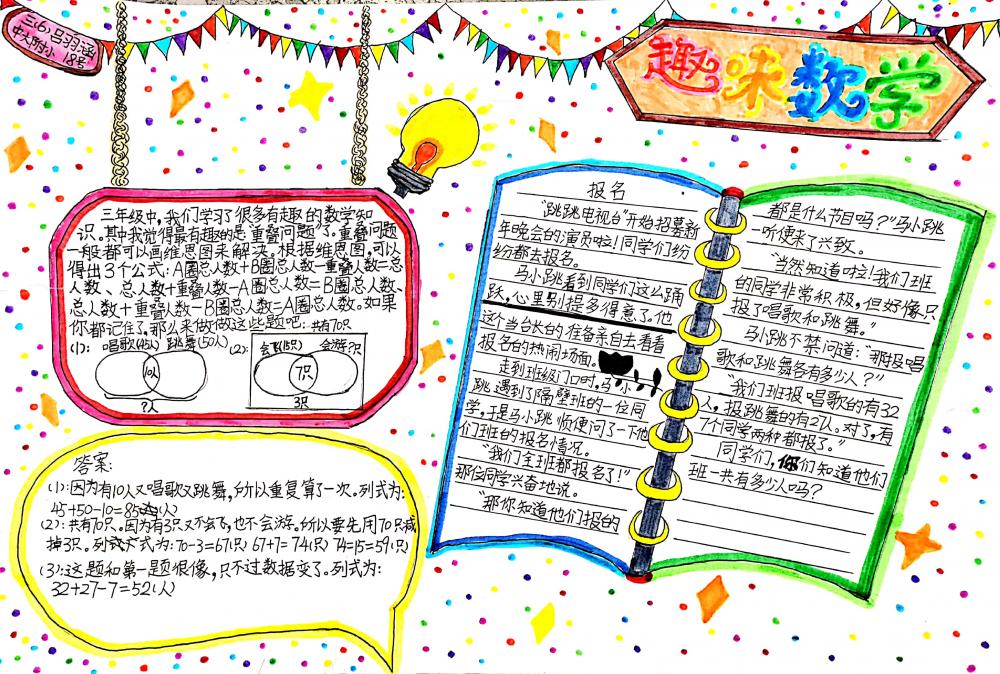 三(6)马羽译
中大附小 18号
趣味数学
三年级中，我们学习了很多有趣的数学知
识。其中我觉得最有趣的是"重叠问题"了。重叠问题
一般都可以画维恩图来解决。根据维恩图，可以
得出3个公式：A圈总人数+B圈总人数-重叠人数=总
人数、总人数+重叠人数-A圈总人数=B圈总人数、
总人数+重叠人数-B圈总人数=A圈总人数。如果
你都记住了。那么来做做这些题吧：共有70只
(1)：唱歌(45人) 跳舞(50人) (2)：会飞(15只) 会游?只
10人
7只
?人
3只
答案：
(1)：因为有10人又唱歌又跳舞，所以重复算了一次。列式为：
45+50-10=85(人)
(2)：共有70只。因为有3只又不会飞，也不会游。所以要先用70只减
掉3只。列式为：70-3=67(只) 67+7=74(只) 74-15=59(只)
(3)：这题和第一题很像，只不过数据变了。列式为：
32+27-7=52(人)
报名
"跳跳电视台"开始招募新
年晚会的演员啦！同学们纷
纷都去报名。
马小跳看到同学们这么踊
跃，心里别提多得意了。他
这个当台长的准备亲自去看看
报名的热闹场面。
走到班级门口时，马小
跳遇到了隔壁班的一位同
学，于是马小跳顺便问了一下他
们班的报名情况。
"我们全班都报名了！"
那位同学兴奋地说。
"那你知道他们报的
都是什么节目吗？"马小跳
一听便来了兴致。
"当然知道啦！我们班
的同学非常积极，但好像只
报了唱歌和跳舞。"
马小跳不禁问道："那报唱
歌和跳舞各有多少人？"
"我们班报唱歌的有32
人，报跳舞的有27人。对了，有
7个同学两种都报了。"
同学们，你们知道他们
班一共有多少人吗？